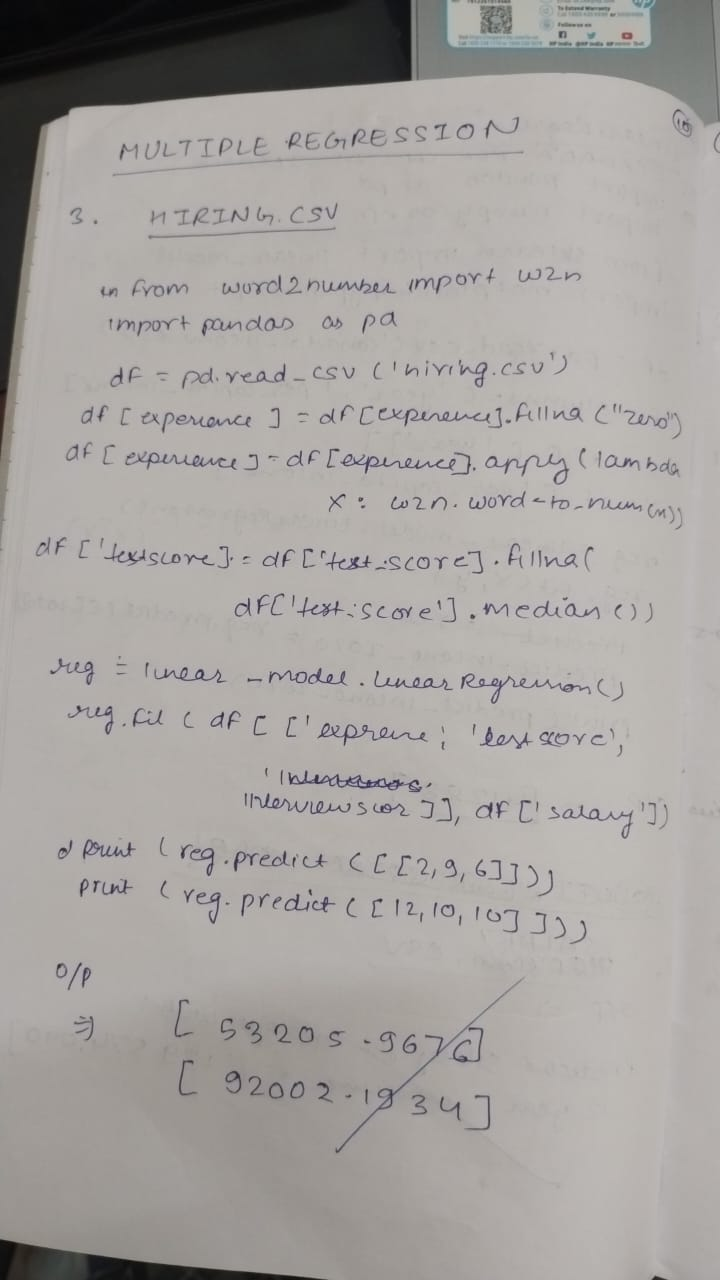 To Extend Warranty
Follow us on
10
MULTIPLE REGRESSION
3. HIRING.CSV
from word2number import w2n
import pandas as pd
df = pd.read_csv ('hiring.csv')
df [experience] = df [experience].fillna ("zero")
df [experience] = df [experience].apply (lambda
x : w2n.word_to_num(n))
df ['testscore] = df ['test_score].fillna(
df['test_score'].median())
reg = linear_model.linear Regression()
reg.fit ( df [ ['exprene', 'test score',
Interviewscor ]], df ['salary'])
print (reg.predict ([[2,9,6]]))
print (reg.predict ([12,10,10] ]))
O/P
⇒ [ 53205.9676]
[ 92002.1934]